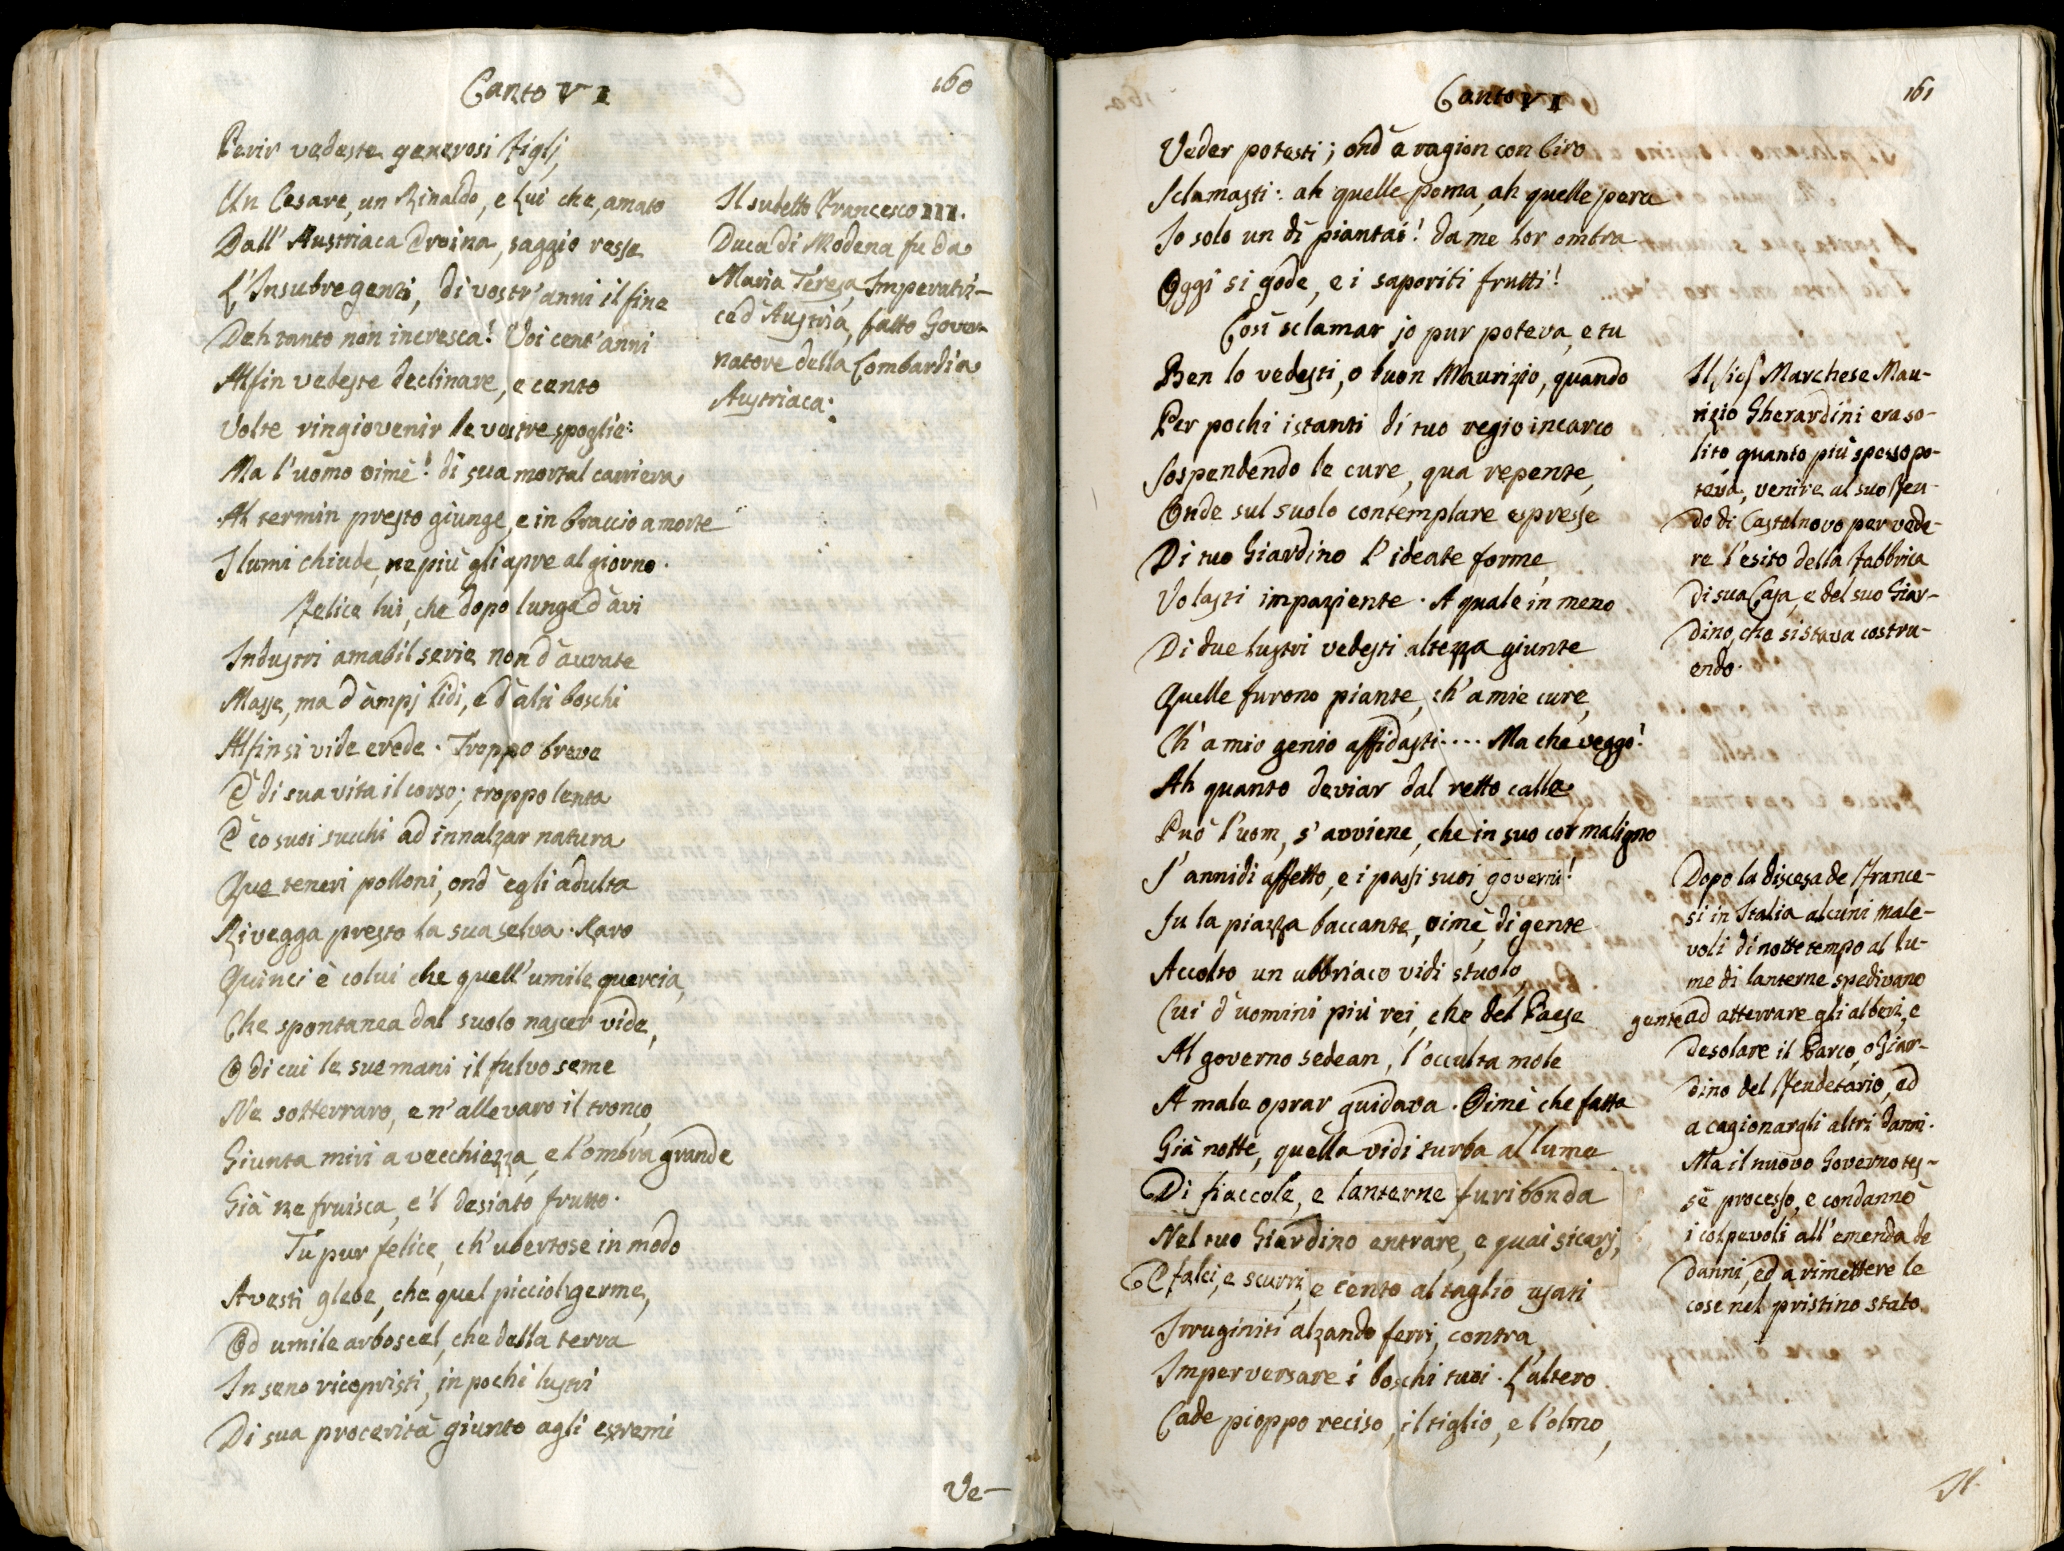 Canto VI
160
Perir vedeste generosi figlj,
Un Cesare, un Rinaldo, e Lui che, amato
Dall' Austriaca Eroina, saggio resse
L'Insubre genti, di vostr' anni il fine
Deh tanto non incresca! Voi cent' anni
Alfin vedeste declinare, e cento
Volte ringiovenir le vostre spoglie:
Ma l'uomo oimè! di sua mortal carriera
Al termin presto giunge, e in braccio a morte
I lumi chiude, ne più gli apre al giorno.
Felice lui, che dopo lunga d'avi
Industri amabil serie non d'aurate
Masse, ma d'ampj lidi, e d'alti boschi
Alfin si vide erede. Troppo breve
È di sua vita il corso; troppo lenta
È co suoi succhi ad innalzar natura
Que teneri polloni, ond' egli adulta
Rivegga presto la sua selva. Raro
Quinci è colui che quell' umile quercia,
Che spontanea dal suolo nascer vide,
O di cui le sue mani il fulvo seme
Ne sotterraro, e n' allevaro il tronco,
Giunta miri a vecchiezza, e l'ombra grande
Già ne fruisca, e 'l desiato frutto.
Tu pur felice, ch' ubertose in modo
Avesti glebe, che quel picciol germe,
Ed umile arboscel, che dalla terra
In seno ricopristi, in pochi lustri
Di sua procerità giunto agli estremi
Il sudetto Francesco III.
Duca di Modena fu da
Maria Teresa, Imperatri-
ce d'Austria, fatto Gover-
natore della Lombardia
Austriaca:
Ve-
Canto VI
161
Veder potesti; ond' a ragion con Ciro
Sclamasti: ah quelle poma, ah quelle pera
Io solo un dì piantai! da me lor ombra
Oggi si gode, e i saporiti frutti!
Così sclamar io pur poteva, e tu
Ben lo vedesti, o buon Maurizio, quando
Per pochi istanti di tuo regio incarco
Sospendendo le cure, qua repente,
Onde sul suolo contemplare espresse
Di tuo Giardino l'ideate forme,
Volasti impaziente. A quale in meno
Di due lustri vedesti altezza giunte
Quelle furono piante, ch' a mie cure,
Ch' a mio genio affidasti.... Ma che veggo!
Ah quanto deviar dal retto calle
Può l'uom, s' avviene, che in suo cor maligno
S' annidi affetto, e i passi suoi governi!
Su la piazza baccante, oimè, di gente
Accolto un ubbriaco vidi stuolo,
Cui d' uomini più rei, che del Paese
Al governo sedean, l'occulta mole
A male oprar guidava. Oimè che fatta
Già notte, quella vidi turba al lume
Di fiaccole, e lanterne furibonda
Nel tuo Giardino entrare, e quai sicarj,
E falci, e scurri, e cento al taglio usati
Irruginiti alzando ferri, contra
Imperversare i boschi tuoi. L'altero
Cade pioppo reciso, il tiglio, e l'olmo,
Il Sig. Marchese Mau-
rizio Gherardini era so-
lito, quanto più spesso po-
teva, venire al suo Feu-
do di Castelnovo per vede-
re l'esito della Fabbrica
di sua Casa, e del suo Giar-
dino, che si stava costru-
endo.
Dopo la discesa de France-
si in Italia alcuni male-
voli di notte tempo al lu-
me di lanterne spedivano
gente ad atterrare gli alberi, e
desolare il Parco, o Giar-
dino del Feudetario, ed
a cagionargli altri danni.
Ma il nuovo Governo tes-
sè processo, e condannò
i colpevoli all' emenda de
danni, ed a rimettere le
cose nel pristino stato.
Il